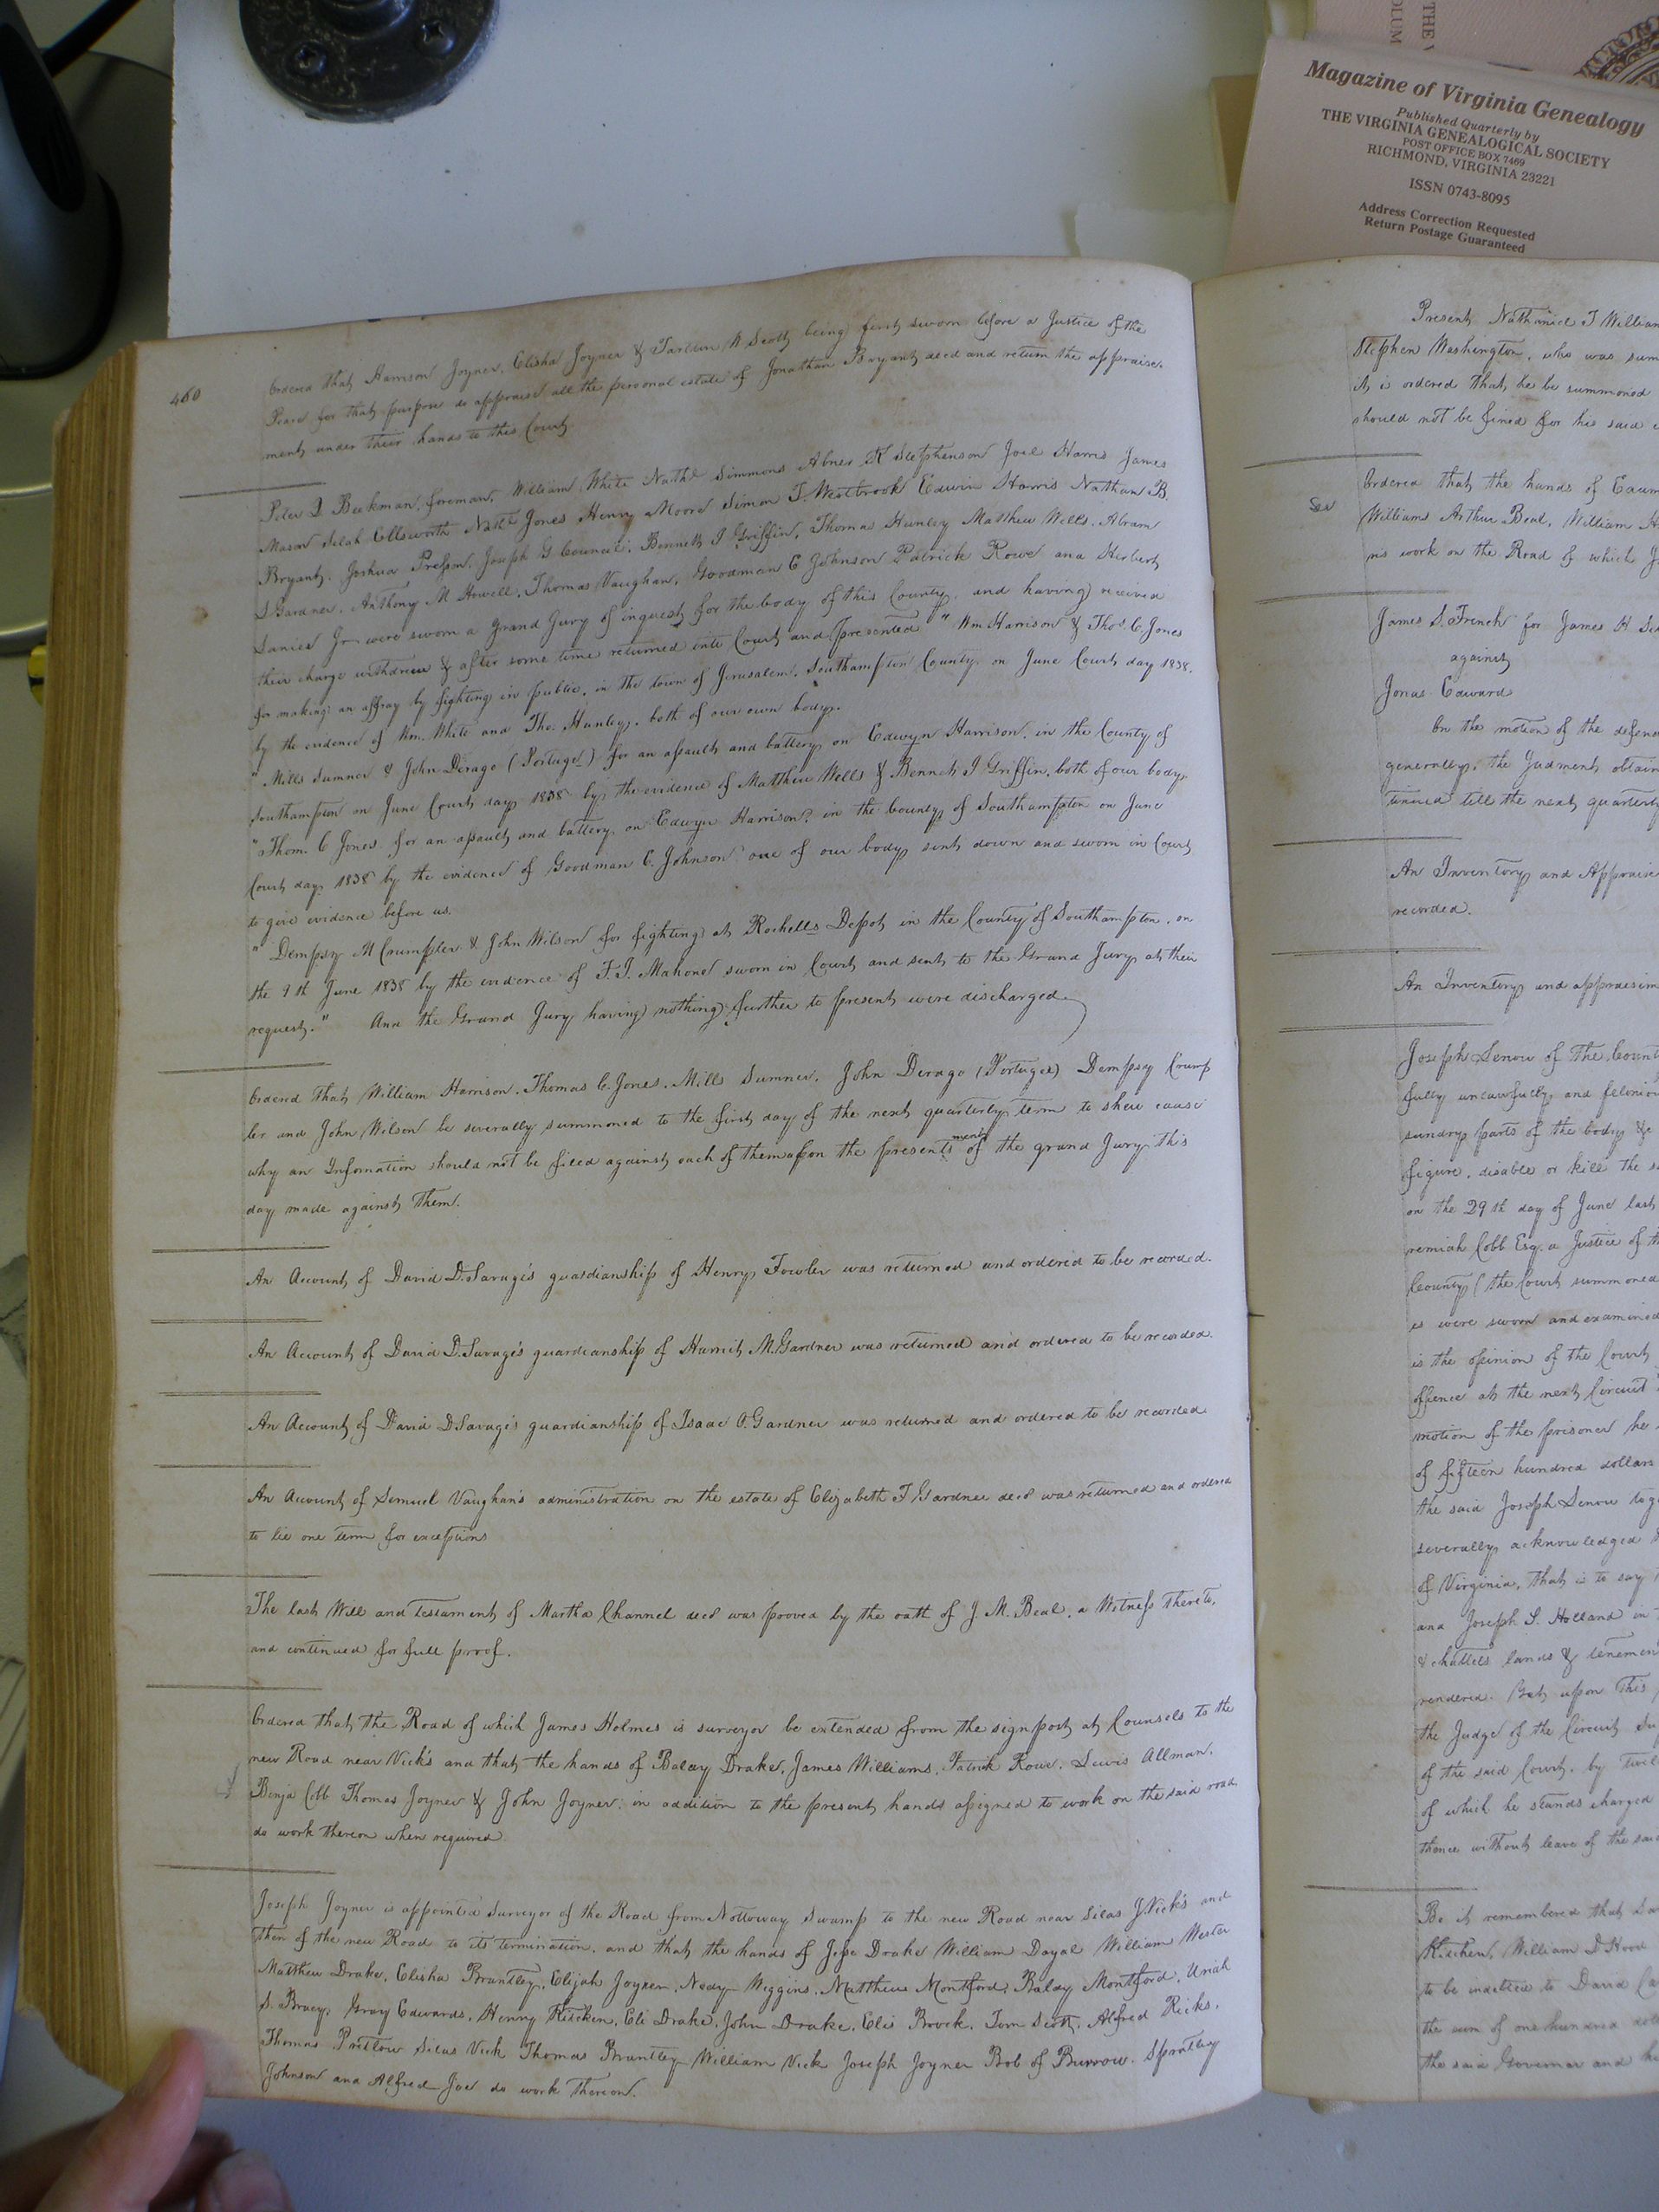 THE V
OLUM
Magazine of Virginia Genealogy
Published Quarterly by
THE VIRGINIA GENEALOGICAL SOCIETY
POST OFFICE BOX 7469
RICHMOND, VIRGINIA 23221
ISSN 0743-8095
Address Correction Requested
Return Postage Guaranteed
460
Ordered that Harrison Joyner, Elisha Joyner & W Scott being first sworn before a Justice of the
Peace for that purpose do appraise all the personal estate of Jonathan Bryant decd and return the appraise-
ment under their hands to this Court.
Peter D Beekman, foreman, William White Nathl Simmons Abner K Stephenson Joel Harris James
Mason Selah Ellsworth Nathl Jones Henry Moore Simon T. Westbrook Edwin Harris Nathan B.
Bryant, Joshua Presson, Joseph G Council, Bennett J Griffin, Thomas Hunley Matthew Wells, Abram
S Gardner, Anthony M Howell, Thomas Vaughan, Goodman C Johnson Patrick Rowe and Herbert
Daniel Jr were sworn a Grand Jury of inquest for the body of this County, and having received
their charge withdrew & after some time returned into Court and presented " Wm Harrison & Thos. C. Jones
for making an affray by fighting in public, in the town of Jerusalem, Southampton County, on June Court day 1838,
by the evidence of Wm. White and Tho. Hunley, both of our own body.
" Mills Sumner & John Dirago (Portuge) for an assault and battery on Edwyn Harrison, in the County of
Southampton on June Court day 1838 by the evidence of Matthew Wells & Bennett J Griffin, both of our body
" Thom. C Jones for an assault and battery on Edwyn Harrison in the County of Southampton on June
Court day 1838 by the evidence of Goodman C. Johnson one of our body sent down and sworn in Court
to give evidence before us.
" Dempsy M Crumpler & John Wilson for fighting at Rochells Depot in the County of Southampton, on
the 9th June 1838 by the evidence of F. J. Mahone sworn in Court and sent to the Grand Jury at their
request." And the Grand Jury having nothing further to present were discharged
Ordered that William Harrison, Thomas C. Jones, Mills Sumner, John Dirago (Portugee) Dempsy Crump
ler and John Wilson be severally summoned to the first day of the next quarterly term to shew cause
why an Information should not be filed against each of them upon the presentment of the grand Jury this
day made against them.
An Account of David D. Savage's guardianship of Henry Fowler was returned and ordered to be recorded.
An Account of David D. Savage's guardianship of Harriet M. Gardner was returned and ordered to be recorded.
An Account of David D Savage's guardianship of Isaac O. Gardner was returned and ordered to be recorded
An Account of Samuel Vaughan's administration on the estate of Elizabeth T Gardner decd was returned and ordered
to lie one term for exceptions
The last Will and testament of Martha Channel decd was proved by the oath of J. M. Beal, a Witness thereto,
and continued for full proof.
Ordered that the Road of which James Holmes is surveyor be extended from the signpost at Counsels to the
new Road near Vick's and that the hands of Balay Drake, James Williams, Patrick Rowe, Lewis Allman,
Benja Cobb Thomas Joyner & John Joyner, in addition to the present hands assigned to work on the said road
do work thereon when required
Joseph Joyner is appointed Surveyor of the Road from Nottoway Swamp to the new Road near Silas J Vick's and
then of the new Road to its termination, and that the hands of Jesse Drake William Doyal William Wester
Matthew Drake, Elisha Brantley, Elijah Joyner, Nedy Wiggins, Matthew Montford, Balay Montford, Uriah
S. Bracy, Gray Edwards, Henry Kitchen, Eli Drake, John Drake, Elis Brock, Tom Scott, Alfred Ricks,
Thomas Pretlow Silas Vick Thomas Brantley William Vick Joseph Joyner Bob of Burrow Spratley
Johnson and Alfred Joe do work thereon.
Present Nathaniel T William
Stephen Washington, who was sum
it is ordered that he be summoned
should not be fined for his said
Ordered that the hands of
Williams Arthur Beal, William H
ns work on the Road of which J
James S. French for James H
against
Jonas Edward
On the motion of the defen
generally, the Judment obtain
tinued till the next quarterly
An Inventory and Appraise
recorded.
An Inventory and appraisem
Joseph Lenow of the Count
fully unlawfully and feloniou
sundry parts of the body &c
figure, disable or kill the s
on the 29th day of June last
remiah Cobb Esq. a Justice of th
County (the Court summoned
es were sworn and examined
is the opinion of the Court
offence at the next Circuit
motion of the prisoner he
of fifteen hundred dollars
the said Joseph Lenow tog
severally acknowledged
of Virginia, that is to say
and Joseph S. Holland in
& chattels lands & tenemen
rendered. But upon this
the Judge of the Circuit Su
of the said Court, by
of which he stands charged
thence without leave of the said
Be it remembered that
Kitchen, William D Hood
to be indebted to David
the sum of one hundred
the said Governor and